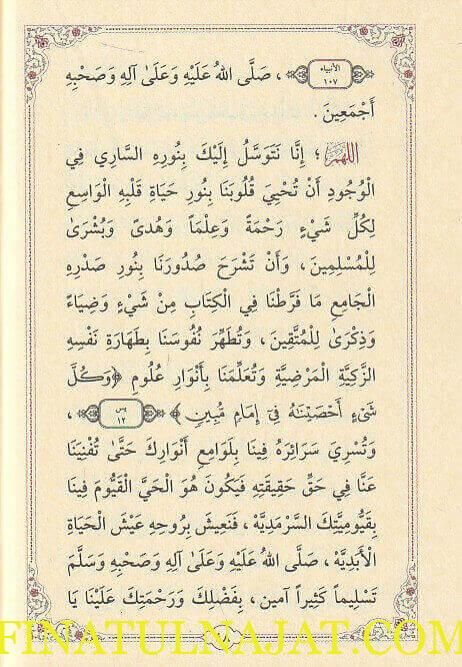 الأنبياء ١٠٧ ، صَلَّى اللهُ عَلَيْهِ وَعَلَىٰ آلِهِ وَصَحْبِهِ
أَجْمَعِينَ .
اللهم ؛ إِنَّا نَتَوَسَّلُ إِلَيْكَ بِنُورِهِ السَّارِي فِي
الْوُجُودِ أَنْ تُحْيِيَ قُلُوبَنَا بِنُورِ حَيَاةِ قَلْبِهِ الْوَاسِعِ
لِكُلِّ شَيْءٍ رَحْمَةً وَعِلْمَاً وَهُدىً وَبُشْرَىٰ
لِلْمُسْلِمِينَ ، وَأَنْ تَشْرَحَ صُدُورَنَا بِنُورِ صَدْرِهِ
الْجَامِعِ مَا فَرَّطْنَا فِي الْكِتَابِ مِنْ شَيْءٍ وَضِيَاءً
وَذِكْرَىٰ لِلْمُتَّقِينَ ، وَتُطَهِّرَ نُفُوسَنَا بِطَهَارَةِ نَفْسِهِ
الزَّكِيَّةِ الْمَرْضِيَّةِ وَتُعَلِّمَنَا بِأَنْوَارِ عُلُومِ ﴿وَكُلَّ
شَىْءٍ أَحْصَيْنَٰهُ فِىٓ إِمَامٍ مُّبِينٍ﴾ يس ١٢ ،
وَتُسْرِيَ سَرَائِرَهُ فِينَا بِلَوَامِعِ أَنْوَارِكَ حَتَّىٰ تُفْنِيَنَا
عَنَّا فِي حَقِّ حَقِيقَتِهِ فَيَكُونَ هُوَ الْحَيَّ الْقَيُّومَ فِينَا
بِقَيُّومِيَّتِكَ السَّرْمَدِيَّهِ ، فَنَعِيشَ بِرُوحِهِ عَيْشَ الْحَيَاةِ
الْأَبَدِيَّهِ ، صَلَّى اللهُ عَلَيْهِ وَعَلَىٰ آلِهِ وَصَحْبِهِ وَسَلَّمَ
تَسْلِيماً كَثِيراً آمين ، بِفَضْلِكَ وَرَحْمَتِكَ عَلَيْنَا يَا
FINATULNAJAT.COM